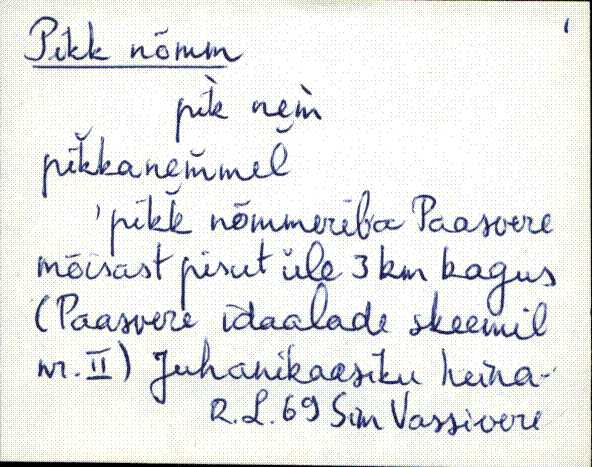 Pikk nõmm
pìk nem̀
pikkanem̆mel̆
'pikk nõmmeriba Paasvere
mõisast pisut üle 3 km kagus
(Paasvere idaalade skeemil
nr. II) Juhanikaasiku heina-
R.L. 69 Sim Vassivere